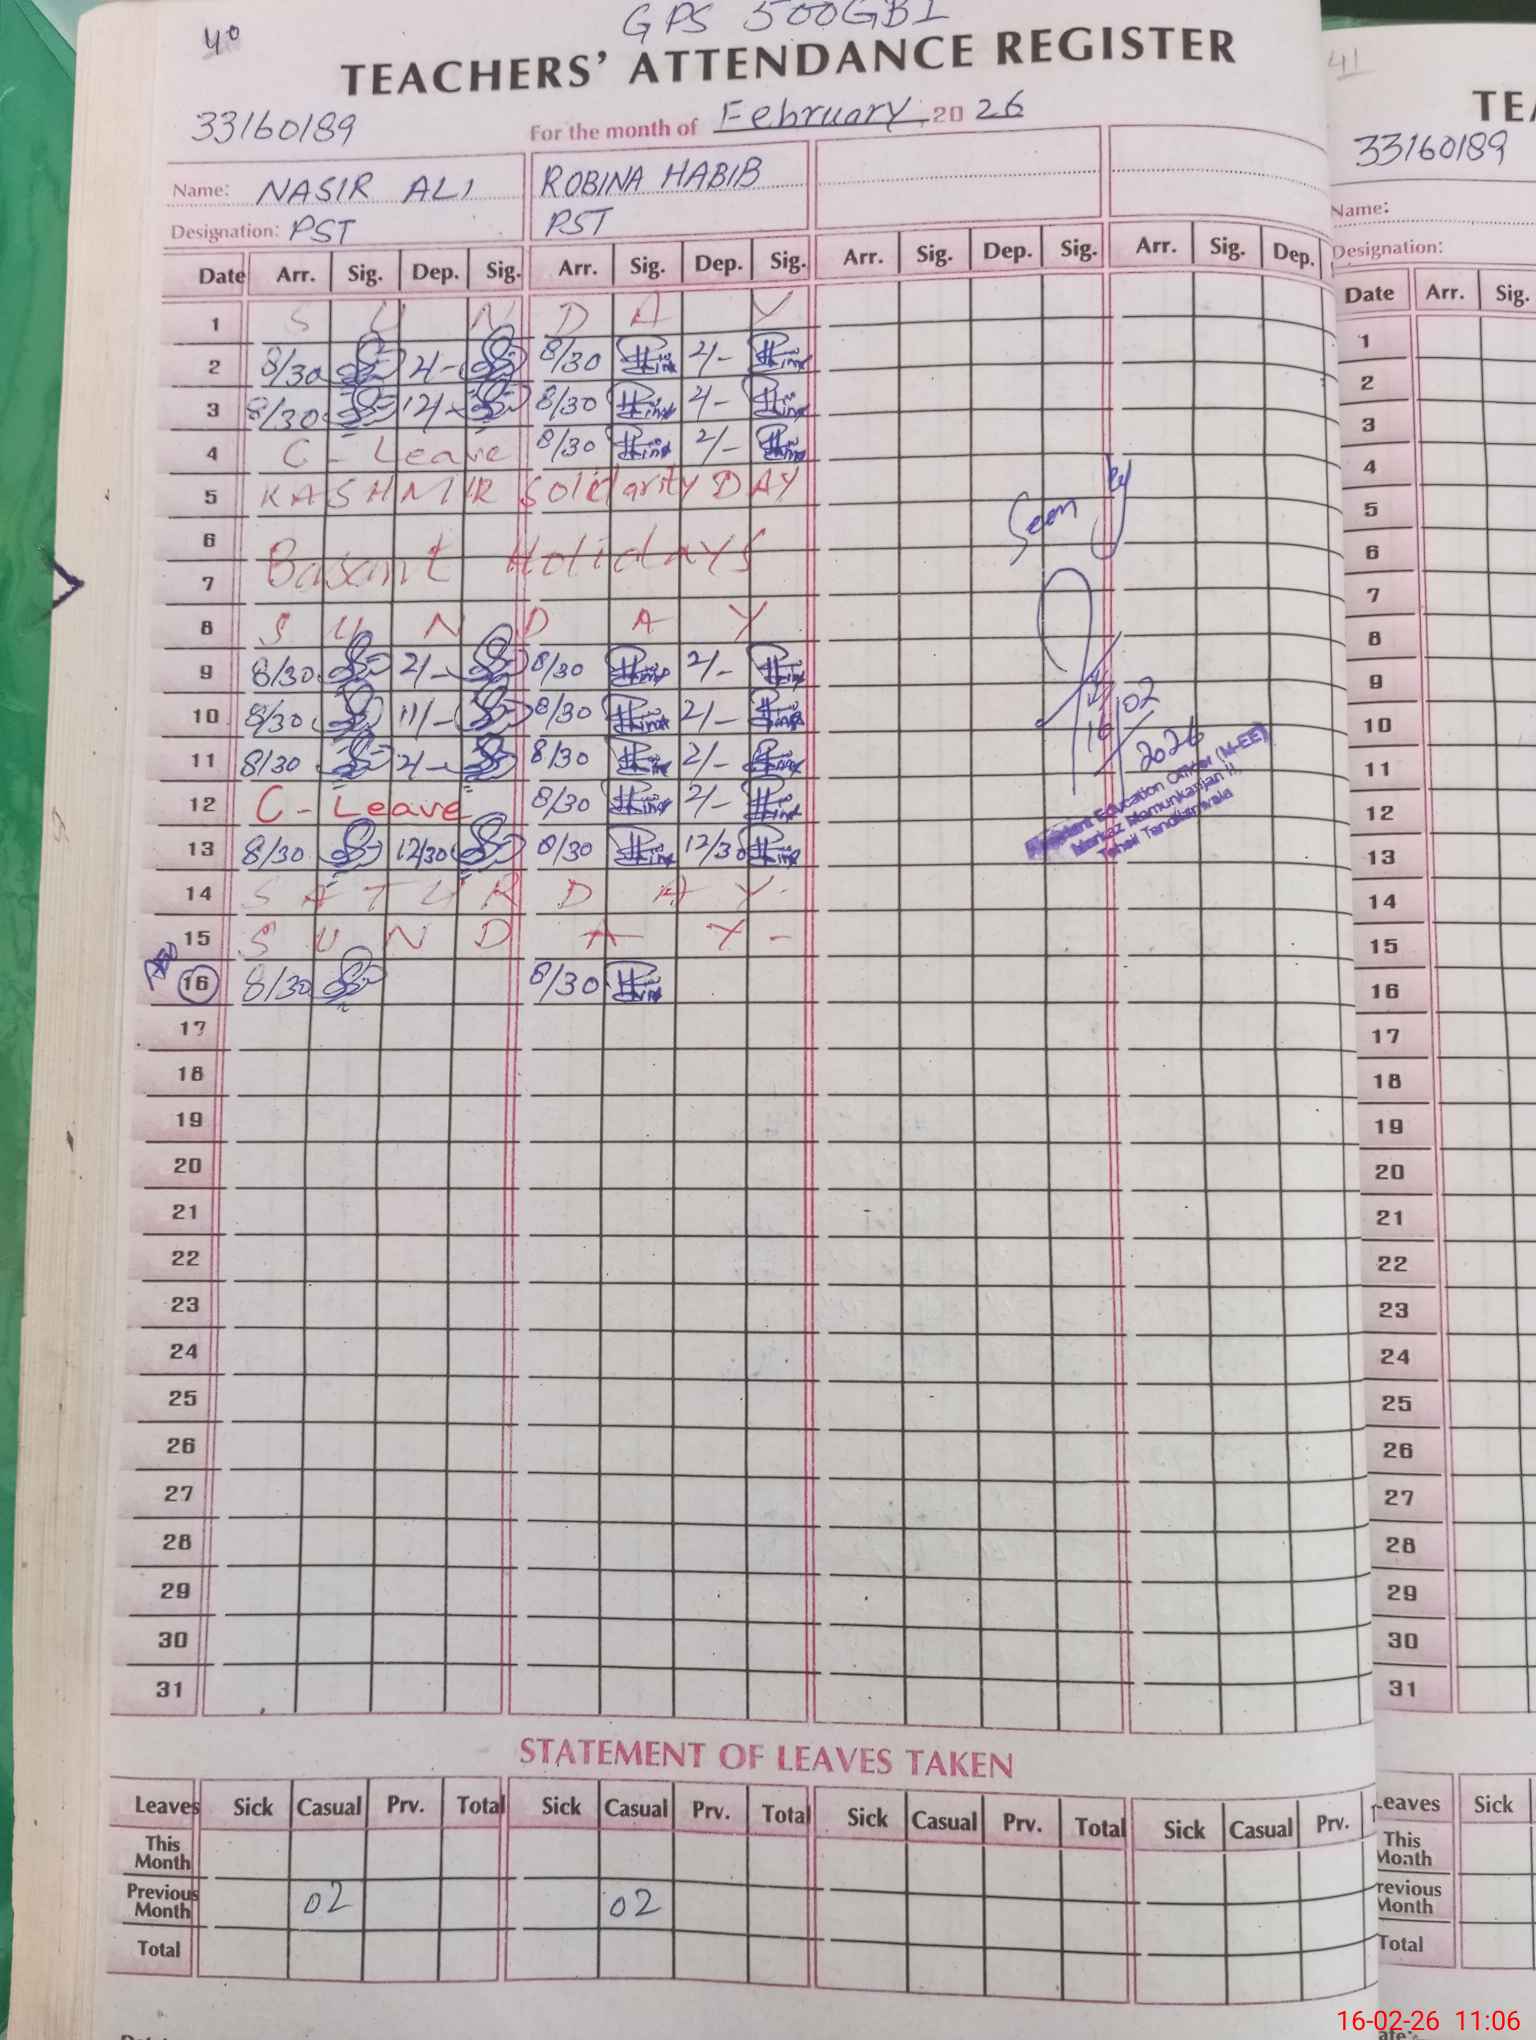 40
GPS 500GB1
TEACHERS' ATTENDANCE REGISTER
33160189
For the month of February 2026
Name: NASIR ALI ROBINA HABIB
Designation: PST PST
Date Arr. Sig. Dep. Sig. Arr. Sig. Dep. Sig. Arr. Sig. Dep. Sig. Arr. Sig. Dep.
1 S U N D A Y
2 8/30 2/- 8/30 2/-
3 8/30 12/- 8/30 2/-
4 C - Leave 8/30 2/-
5 KASHMIR Solidarity DAY
6
Basant Holidays
7
8 S U N D A Y
9 8/30 2/- 8/30 2/-
10 8/30 11/- 8/30 2/-
11 8/30 2/- 8/30 2/-
12 C - Leave 8/30 2/-
13 8/30 12/30 8/30 12/30
14 S A T U R D A Y -
15 S U N D A Y -
16 8/30 8/30
17
18
19
20
21
22
23
24
25
26
27
28
29
30
31
Seen by
16/02
2026
Education Officer (M-EE)
Markaz Mamunkanjan II,
Tehsil Tandlianwala
STATEMENT OF LEAVES TAKEN
Leaves Sick Casual Prv. Total Sick Casual Prv. Total Sick Casual Prv. Total Sick Casual Prv.
This Month
Previous Month 02 02
Total
41
TEA
33160189
Name:
Designation:
Date Arr. Sig.
1
2
3
4
5
6
7
8
9
10
11
12
13
14
15
16
17
18
19
20
21
22
23
24
25
26
27
28
29
30
31
Leaves Sick
This Month
Previous Month
Total
16-02-26 11:06